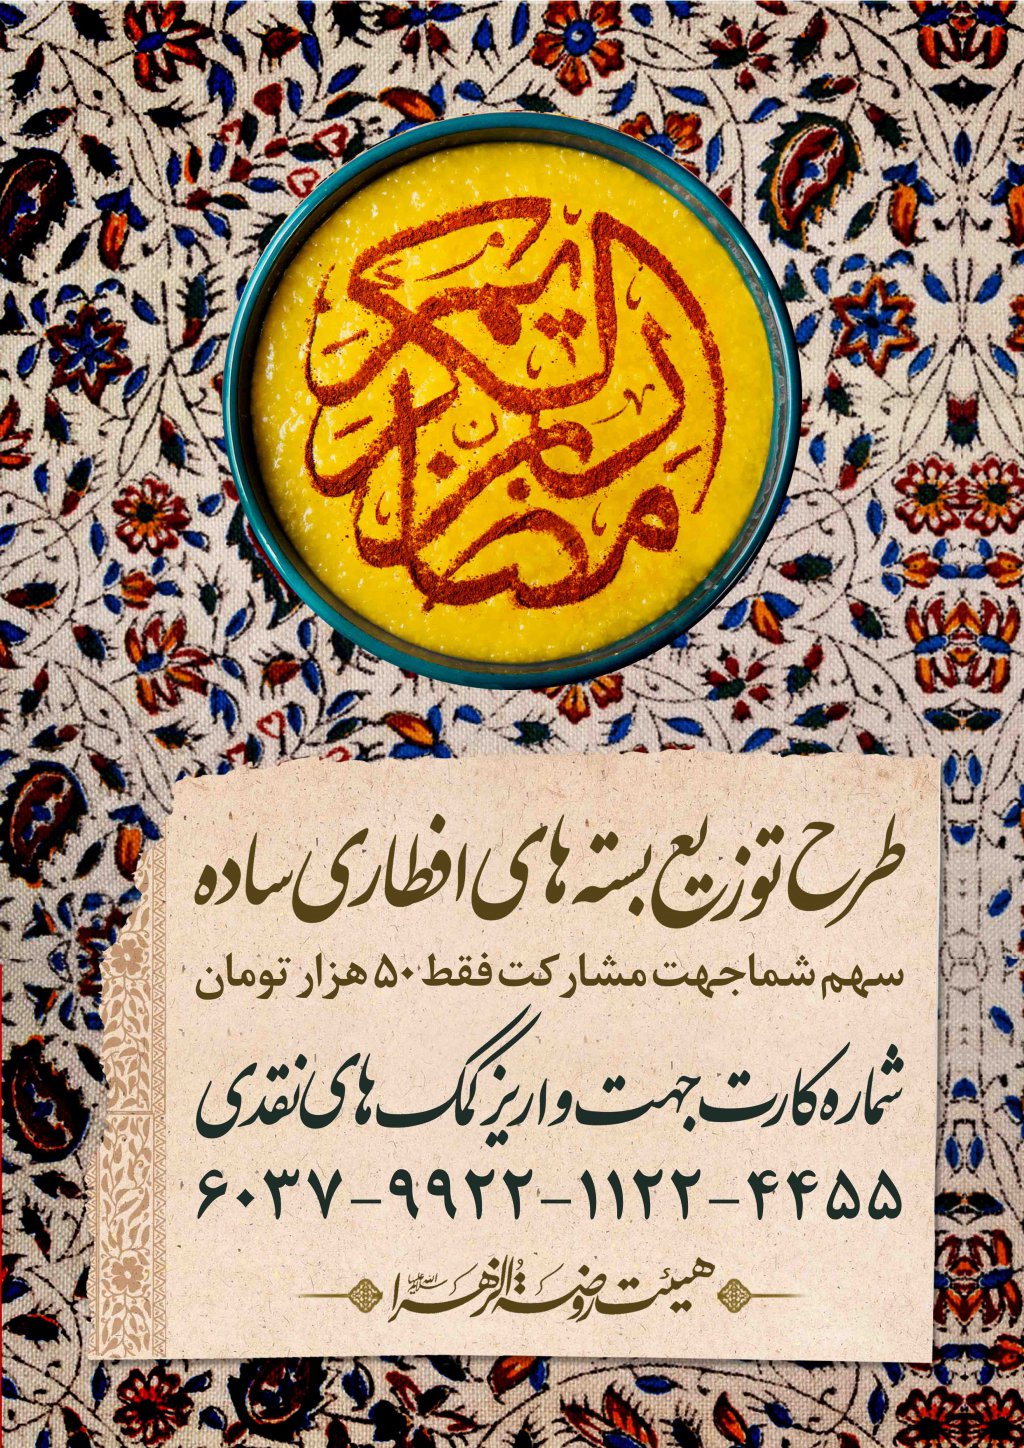 رمضان الکریم
طرح توزیع بسته های افطاری ساده
سهم شما جهت مشارکت فقط ۵۰ هزار تومان
شماره کارت جهت واریز کمک های نقدی
۶۰۳۷-۹۹۲۲-۱۱۲۲-۴۴۵۵
هیئت روضة الزهرا